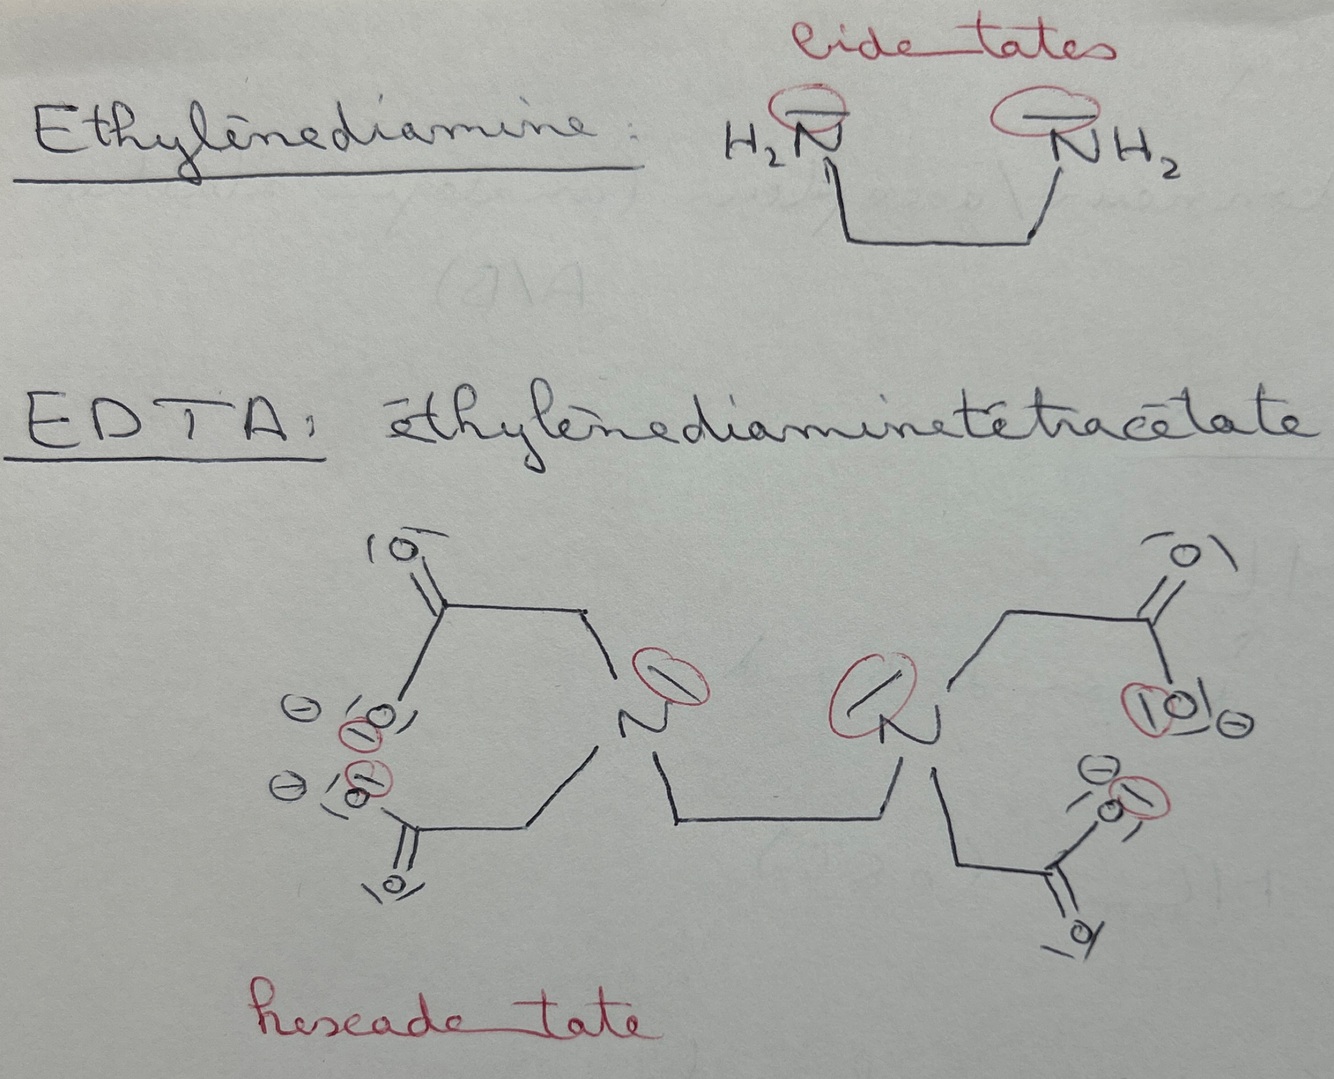 bidentates
Ethylènediamine : H₂N NH₂
EDTA : éthylènediaminetétracétate
O O
N N
⊖ O O ⊖
⊖ O ⊖ O
O O
hexadentate